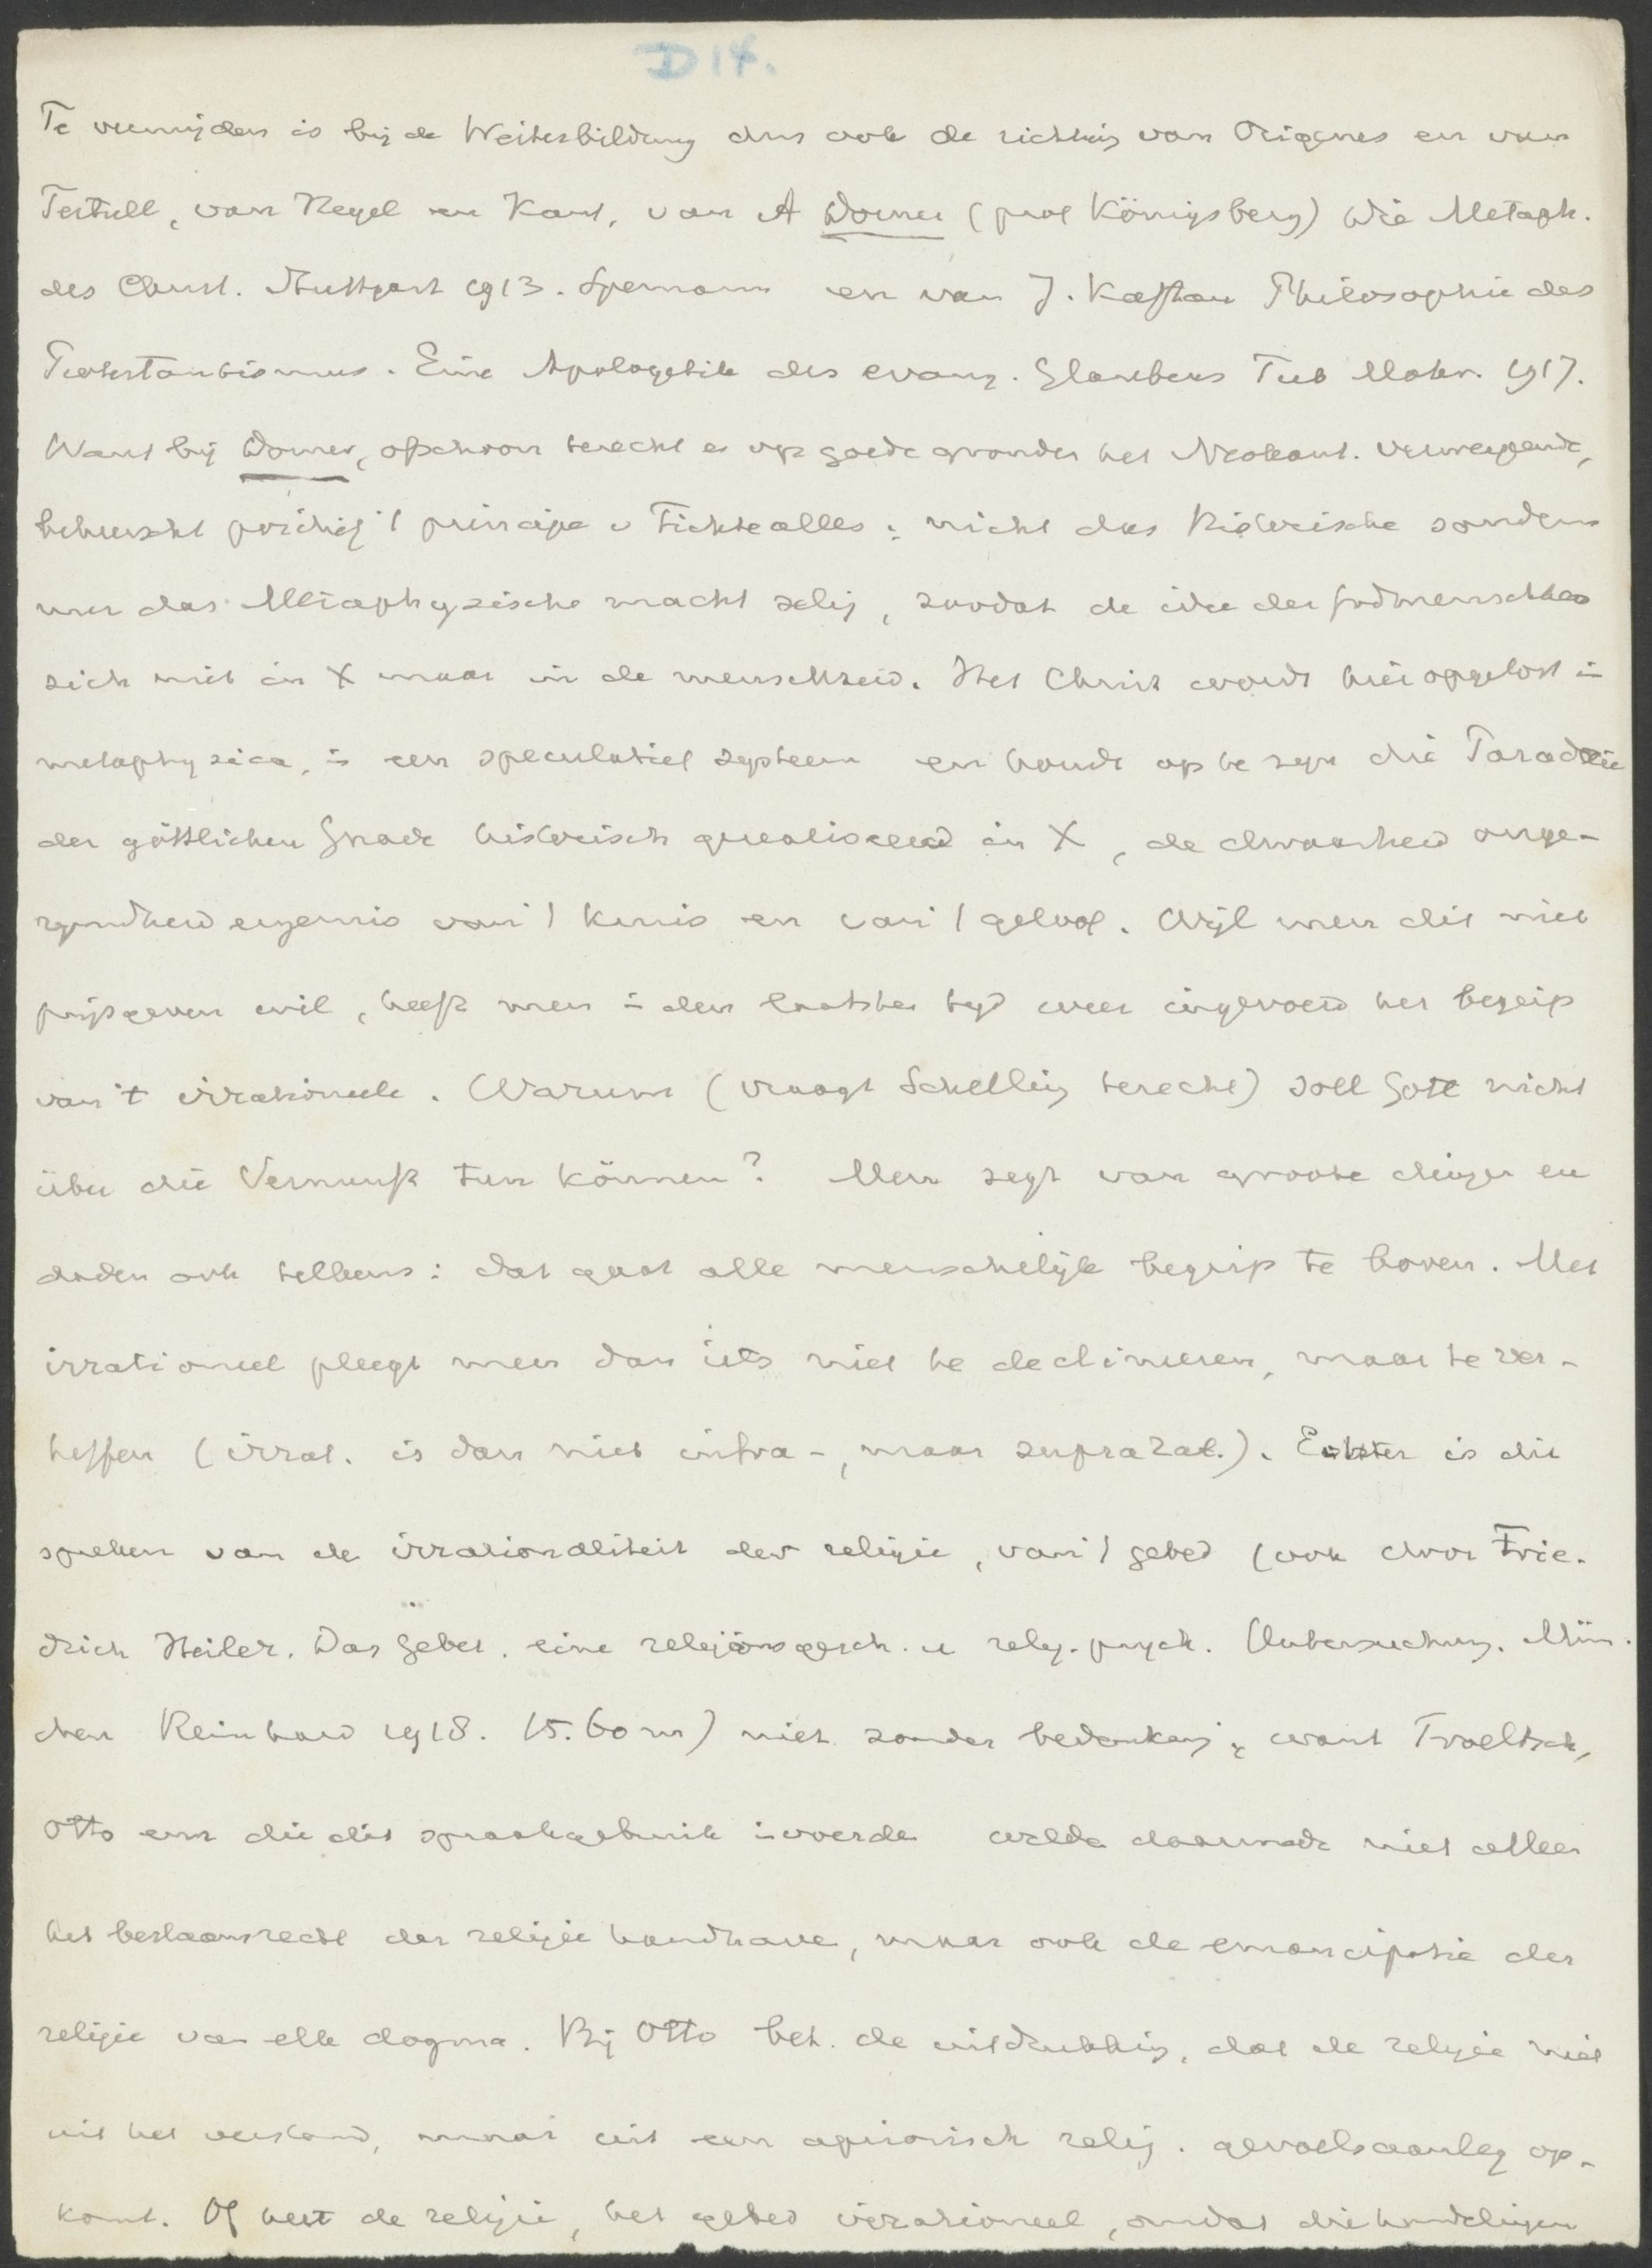 D 14.
Te vermijden is bij de Weiterbildung dus ook de richting van Origenes en van
Tertull, van Hegel en Kant, van A Dorner (prof Königsberg) Die Metaph.
des Christ. Stuttgart 1913. Spemann en van J. Kaftan Philosophie des
Protestantismus. Eine Apologetik des evang. Glaubens Tub Mohr. 1917.
Want bij Dorner, ofschoon terecht en op goede gronden het Neokant. verwerpende,
beheerscht 't principe v Fichte alles: nicht das Historische sondern
nur das Metaphysische macht selig, zoodat de idee der Godmenschheid
zich niet in X maar in de menschheid. Het Christ wordt hier opgelost in
metaphysica, in een speculatief systeem en houdt op te zijn die Paradoxie
der göttlichen Gnade historisch gerealiseerd in X, de dwaasheid onge-
rijmdheid ergernis van 't kruis en van 't geloof. Wijl men dit niet
prijsgeven wil, heeft men in den laatsten tijd weer ingevoerd het begrip
van 't irrationeele. Warum (vraagt Schelling terecht) soll Gott nicht
über die Vernunft tun können? Men zegt van groote dingen en
daden ook telkens: dat gaat alle menschelijk begrip te boven. Met
irrationeel pleegt men dan iets niet te declineren, maar te ver-
heffen (irrat. is dan niet infra-, maar suprarat.). Echter is die
spreken van de irrationaliteit der religie, van 't gebed (ook door Frie-
drich Heiler. Das Gebet. eine religionsgesch. u relig. psych. Untersuchung. Mün-
chen Reinhard 1918. 15.60 m) niet zonder bedenking; want Troeltsch,
Otto enz die dit spraakgebruik invoerden wilden daarmede niet alleen
het bestaansrecht der religie handhaven, maar ook de emancipatie der
religie van elk dogma. Bij Otto bet. de uitdrukking, dat de religie niet
uit het verstand, maar uit een apriorisch relig. gevoelsaanleg op-
komt. Of heet de religie, het gebed irrationeel, omdat die handelingen